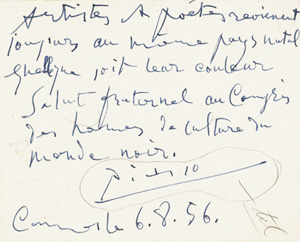 Artistes & poètes reviennent
toujours au même pays natal
quelque soit leur couleur
Salut fraternel au Congrès
des hommes de culture du
monde noir.
Cannes le 6.8.56.